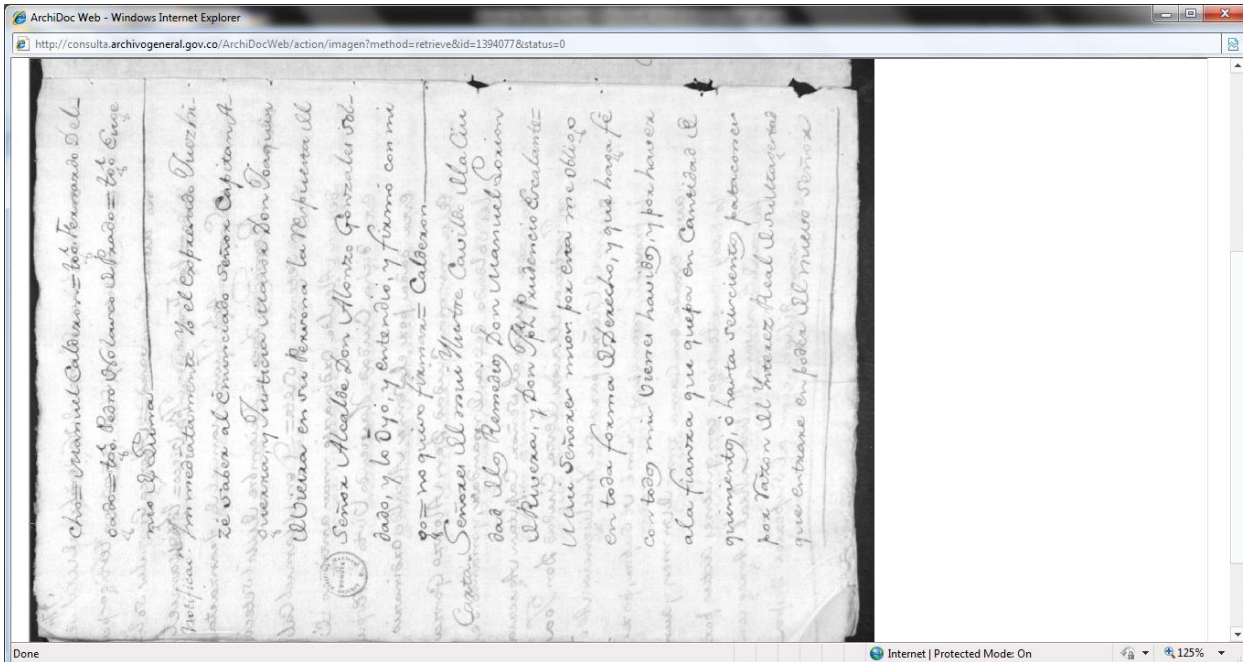 ArchiDoc Web - Windows Internet Explorer
http://consulta.archivogeneral.gov.co/ArchiDocWeb/action/imagen?method=retrieve&id=1394077&status=0
cho= Manuel Calderon= tgo. Fernando Del-
gado= tgo. Pedro Polanco de Prado= tgo. Euge
nio de
Notificn. Immediatamente Yo el expresado Juez hi-
ze saber al Comiciado Señor Capitan A-
Guerra, y Justicia maior Don Joaquin
en su Persona la respuesta del
Señor Alcalde Don Alonzo Gonzales Sol-
dado, y lo Oyó, y entendio, y firmó con mi
go= no quizo firmar= Calderon
Carta. Señores del mui Illustre Cavildo de la Ciu
dad de los Remedios Don Manuel Lorion
de Rivera, y Don Jph Prudencio Escalante=
Mui Señores mios por esta me obligo
en toda forma de Derecho, y que haga fé
con todos mis bienes havidos, y por haver
a la fianza que quepa en Cantidad de
quinientos, ó hasta seiscientos patacones
por razon del Interez Real
que entrare en poder del nuevo Señor
Done
Internet | Protected Mode: On
125%